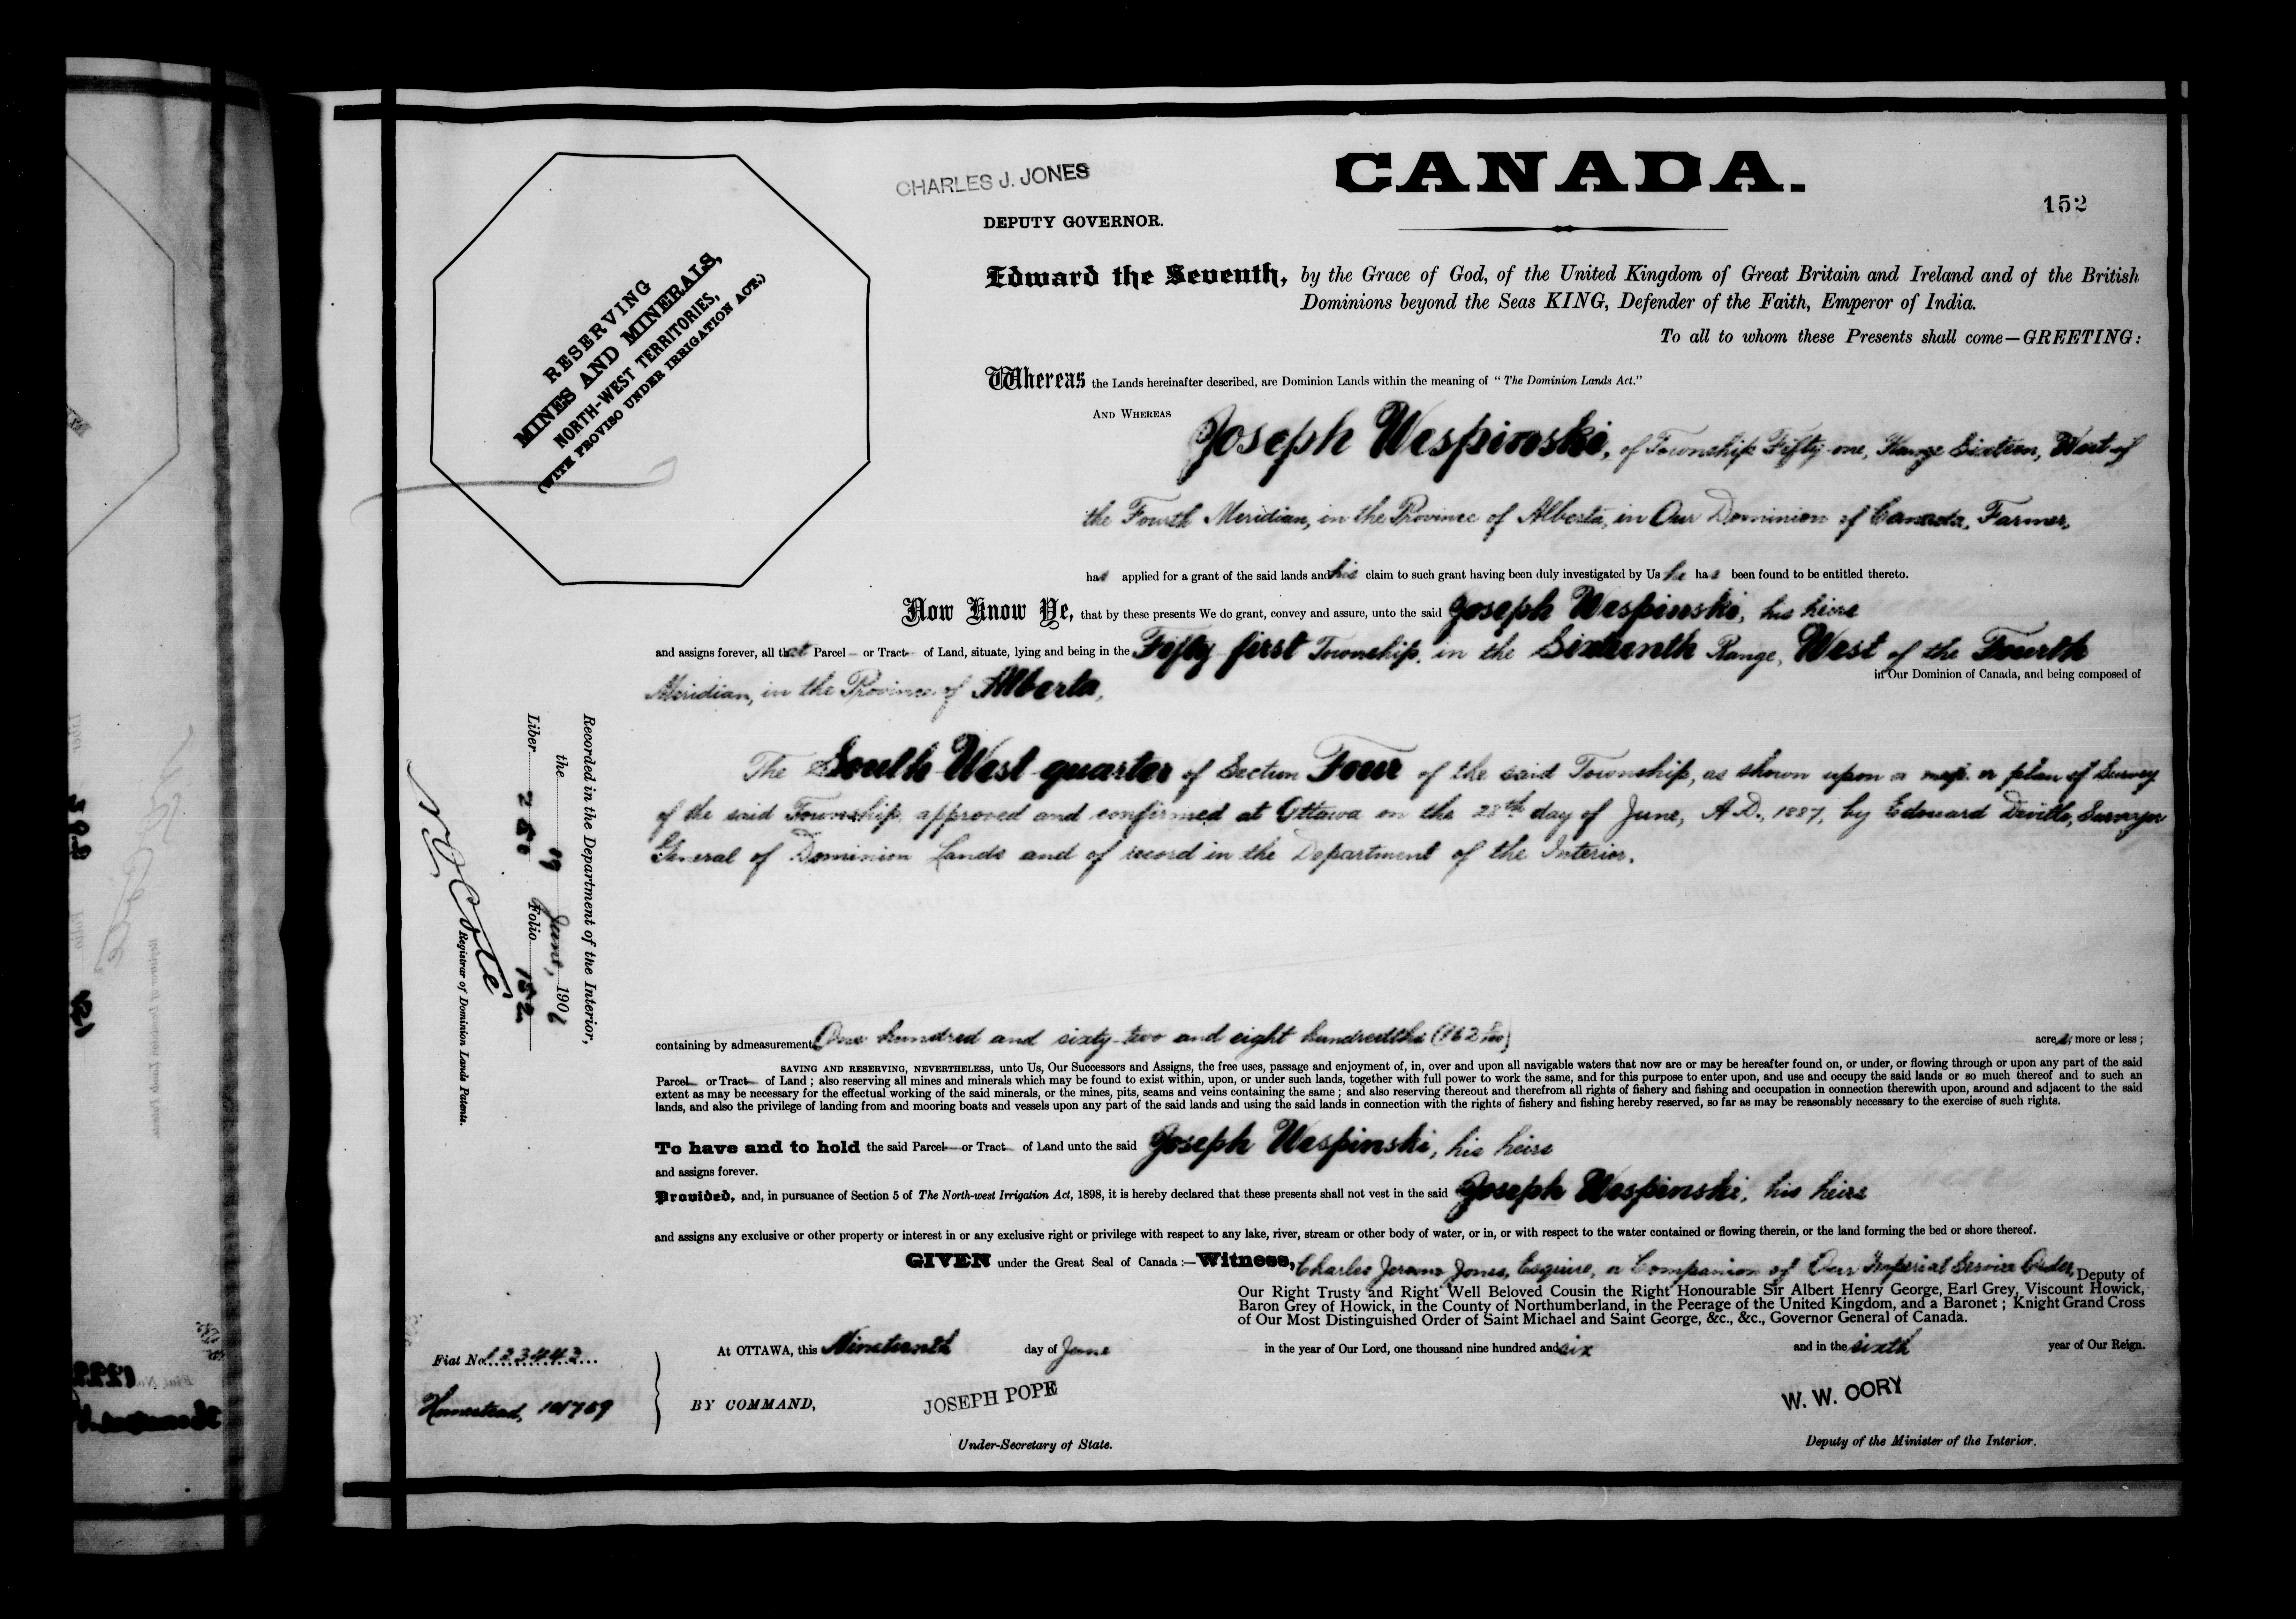 CHARLES J. JONES
CANADA.
152
DEPUTY GOVERNOR.
RESERVING
MINES AND MINERALS,
NORTH-WEST TERRITORIES,
(WITH PROVISO UNDER IRRIGATION ACT.)
Edward the Seventh, by the Grace of God, of the United Kingdom of Great Britain and Ireland and of the British
Dominions beyond the Seas KING, Defender of the Faith, Emperor of India.
To all to whom these Presents shall come—GREETING:
Whereas the Lands hereinafter described, are Dominion Lands within the meaning of "The Dominion Lands Act."
AND WHEREAS Joseph Waspinski, of Township Fifty-one, Range Sixteen, West of
the Fourth Meridian, in the Province of Alberta, in Our Dominion of Canada, Farmer,
has applied for a grant of the said lands and his claim to such grant having been duly investigated by Us he has been found to be entitled thereto.
Now Know Ye, that by these presents We do grant, convey and assure, unto the said Joseph Waspinski, his heirs
and assigns forever, all that Parcel or Tract of Land, situate, lying and being in the Fifty-first Township, in the Sixteenth Range, West of the Fourth
Meridian, in the Province of Alberta,
in Our Dominion of Canada, and being composed of
The South West quarter of Section Four of the said Township, as shown upon a map or plan of Survey
of the said Township approved and confirmed at Ottawa on the 28th day of June, A.D., 1887, by Edouard Deville, Surveyor
General of Dominion Lands and of record in the Department of the Interior.
Recorded in the Department of the Interior,
the 19 June, 1906
Liber 250 Folio 152
N O Coté
Registrar of Dominion Lands Patents.
containing by admeasurement One hundred and sixty-two and eight hundredths (162 8/100) acres, more or less;
SAVING AND RESERVING, NEVERTHELESS, unto Us, Our Successors and Assigns, the free uses, passage and enjoyment of, in, over and upon all navigable waters that now are or may be hereafter found on, or under, or flowing through or upon any part of the said
Parcel or Tract of Land; also reserving all mines and minerals which may be found to exist within, upon, or under such lands, together with full power to work the same, and for this purpose to enter upon, and use and occupy the said lands or so much thereof and to such an
extent as may be necessary for the effectual working of the said minerals, or the mines, pits, seams and veins containing the same; and also reserving thereout and therefrom all rights of fishery and fishing and occupation in connection therewith upon, around and adjacent to the said
lands, and also the privilege of landing from and mooring boats and vessels upon any part of the said lands and using the said lands in connection with the rights of fishery and fishing hereby reserved, so far as may be reasonably necessary to the exercise of such rights.
To have and to hold the said Parcel or Tract of Land unto the said Joseph Waspinski, his heirs
and assigns forever.
Provided, and, in pursuance of Section 5 of The North-west Irrigation Act, 1898, it is hereby declared that these presents shall not vest in the said Joseph Waspinski, his heirs
and assigns any exclusive or other property or interest in or any exclusive right or privilege with respect to any lake, river, stream or other body of water, or in, or with respect to the water contained or flowing therein, or the land forming the bed or shore thereof.
GIVEN under the Great Seal of Canada:—Witness, Charles Jerome Jones, Esquire, a Companion of Our Imperial Service Order, Deputy of
Our Right Trusty and Right Well Beloved Cousin the Right Honourable Sir Albert Henry George, Earl Grey, Viscount Howick,
Baron Grey of Howick, in the County of Northumberland, in the Peerage of the United Kingdom, and a Baronet; Knight Grand Cross
of Our Most Distinguished Order of Saint Michael and Saint George, &c., &c., Governor General of Canada.
At OTTAWA, this Nineteenth day of June in the year of Our Lord, one thousand nine hundred and six and in the sixth year of Our Reign.
Fiat No. 123443
Homestead, 101769
BY COMMAND,
JOSEPH POPE
Under-Secretary of State.
W. W. CORY
Deputy of the Minister of the Interior.